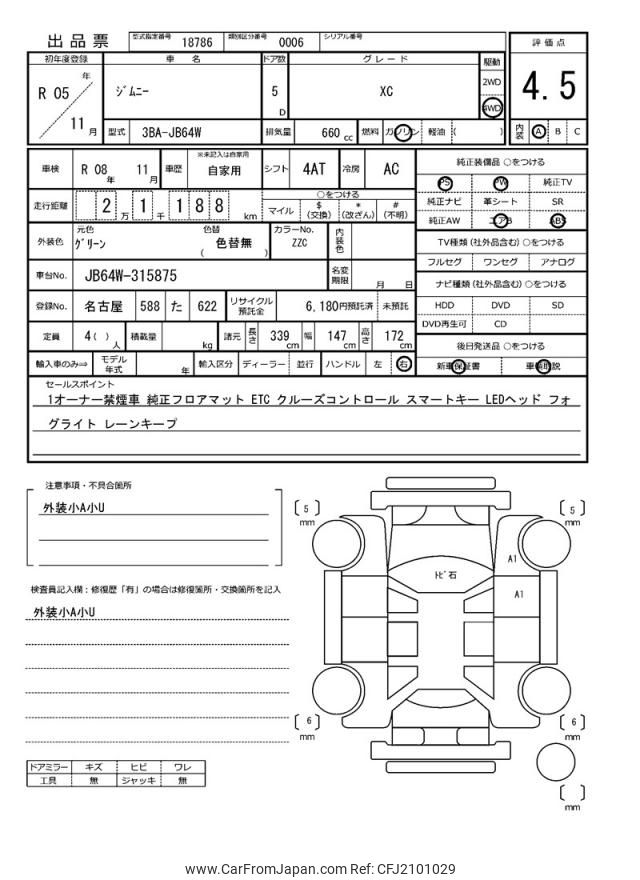 出品票 型式指定番号 18786 類別区分番号 0006 シリアル番号
評価点
4.5
内装 A B C
初年度登録 車名 ドア数 グレード 駆動
R 05 年 11 月 ジムニー 5 D XC 2WD 4WD
型式 3BA-JB64W 排気量 660 cc 燃料 ガソリン 軽油 ( )
車検 R 08 年 11 月 車歴 ※未記入は自家用 自家用 シフト 4AT 冷房 AC
走行距離 2 万 1 千 1 8 8 km ○をつける マイル $ (交換) * (改ざん) # (不明)
外装色 元色 グリーン 色替 ( 色替無 ) カラーNo. ZZC 内装色
車台No. JB64W-315875 名変期限 月 日
登録No. 名古屋 588 た 622 リサイクル預託金 6,180円預託済 未預託
定員 4( ) 人 積載量 kg 諸元 長さ 339 cm 幅 147 cm 高さ 172 cm
輸入車のみ⇒ モデル年式 年 輸入区分 ディーラー 並行 ハンドル 左 右
純正装備品 ○をつける
PS PW 純正TV
純正ナビ 革シート SR
純正AW エアB ABS
TV種類 (社外品含む) ○をつける
フルセグ ワンセグ アナログ
ナビ種類 (社外品含む) ○をつける
HDD DVD SD
DVD再生可 CD
後日発送品 ○をつける
新車保証書 車輌取説
セールスポイント
1オーナー禁煙車 純正フロアマット ETC クルーズコントロール スマートキー LEDヘッド フォ
グライト レーンキープ
注意事項・不具合箇所
外装小A小U
検査員記入欄:修復歴「有」の場合は修復箇所・交換箇所を記入
外装小A小U
ドアミラー キズ ヒビ ワレ
工具 無 ジャッキ 無
[ 5 ] mm
[ 5 ] mm
A1
トビ石
A1
[ 6 ] mm
[ 6 ] mm
[ ] mm
www.CarFromJapan.com Ref: CFJ2101029